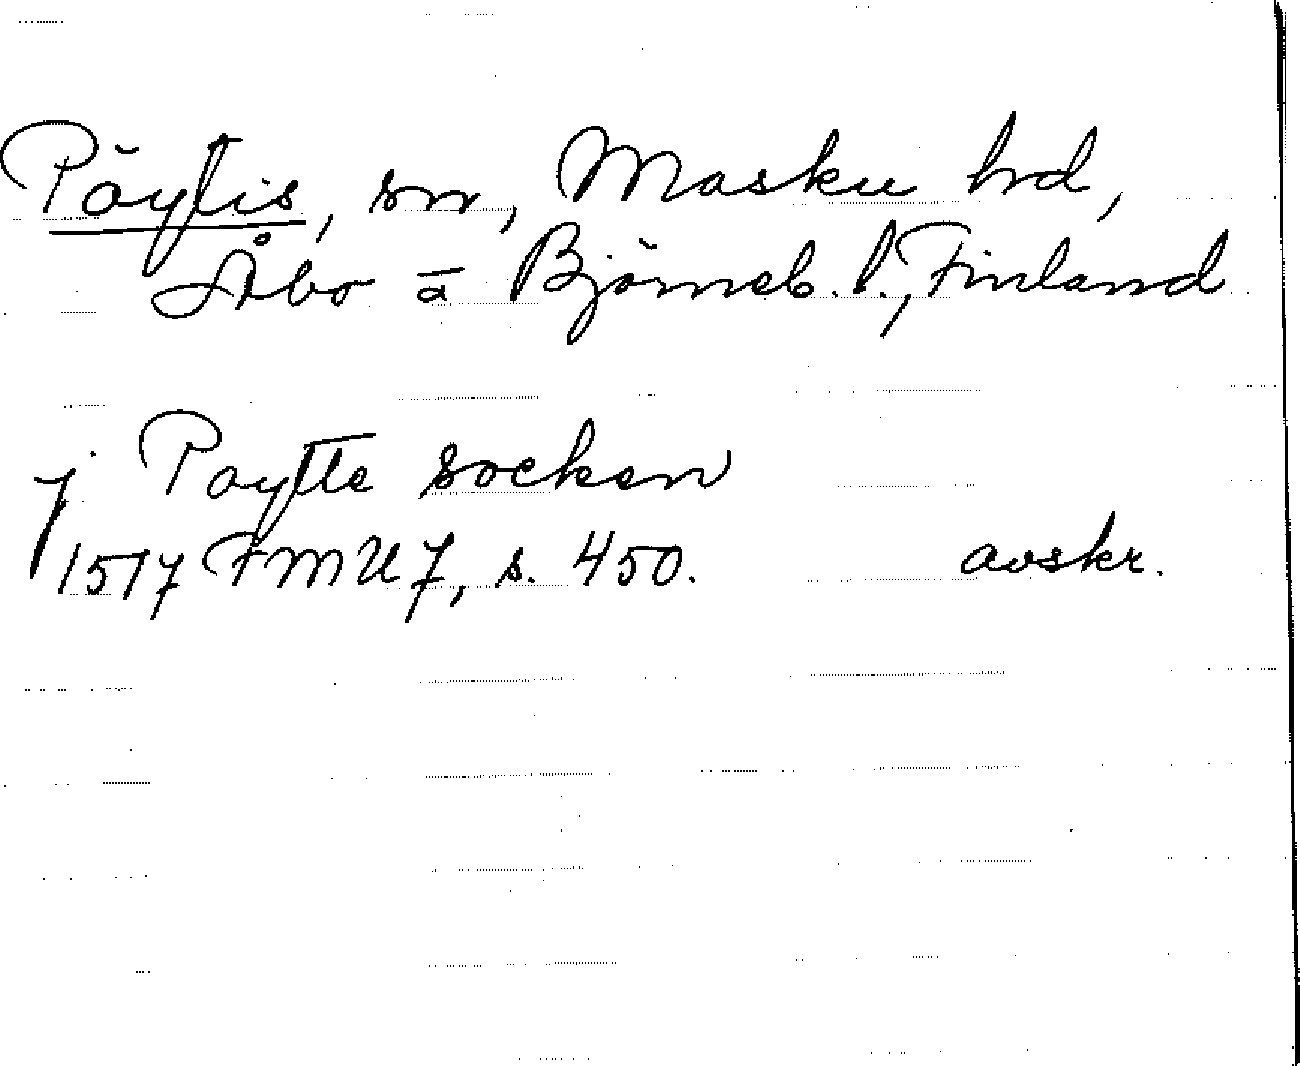 Pöytis, sn, Masku hd,
Åbo o Björneb. l., Finland
j Poytte socken
1517 FMU 7, s. 450. avskr.